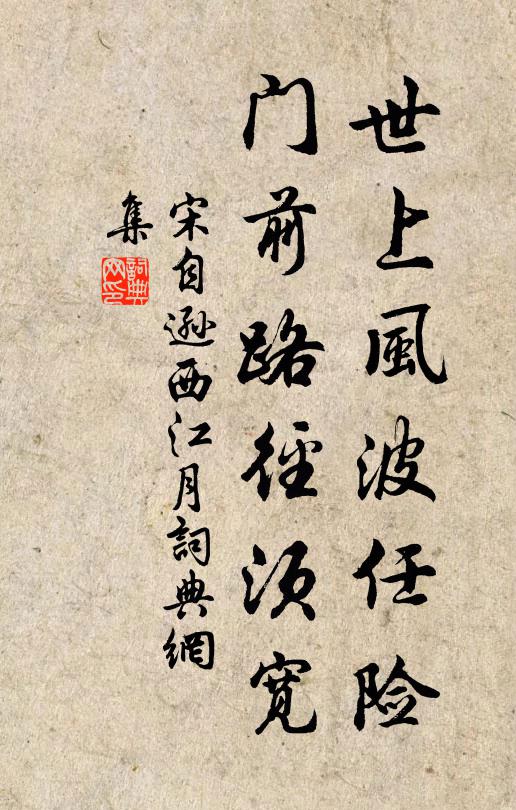 世上風波任险
门前路径须宽
宋自逊西江月詞典網
集
詞典
网印